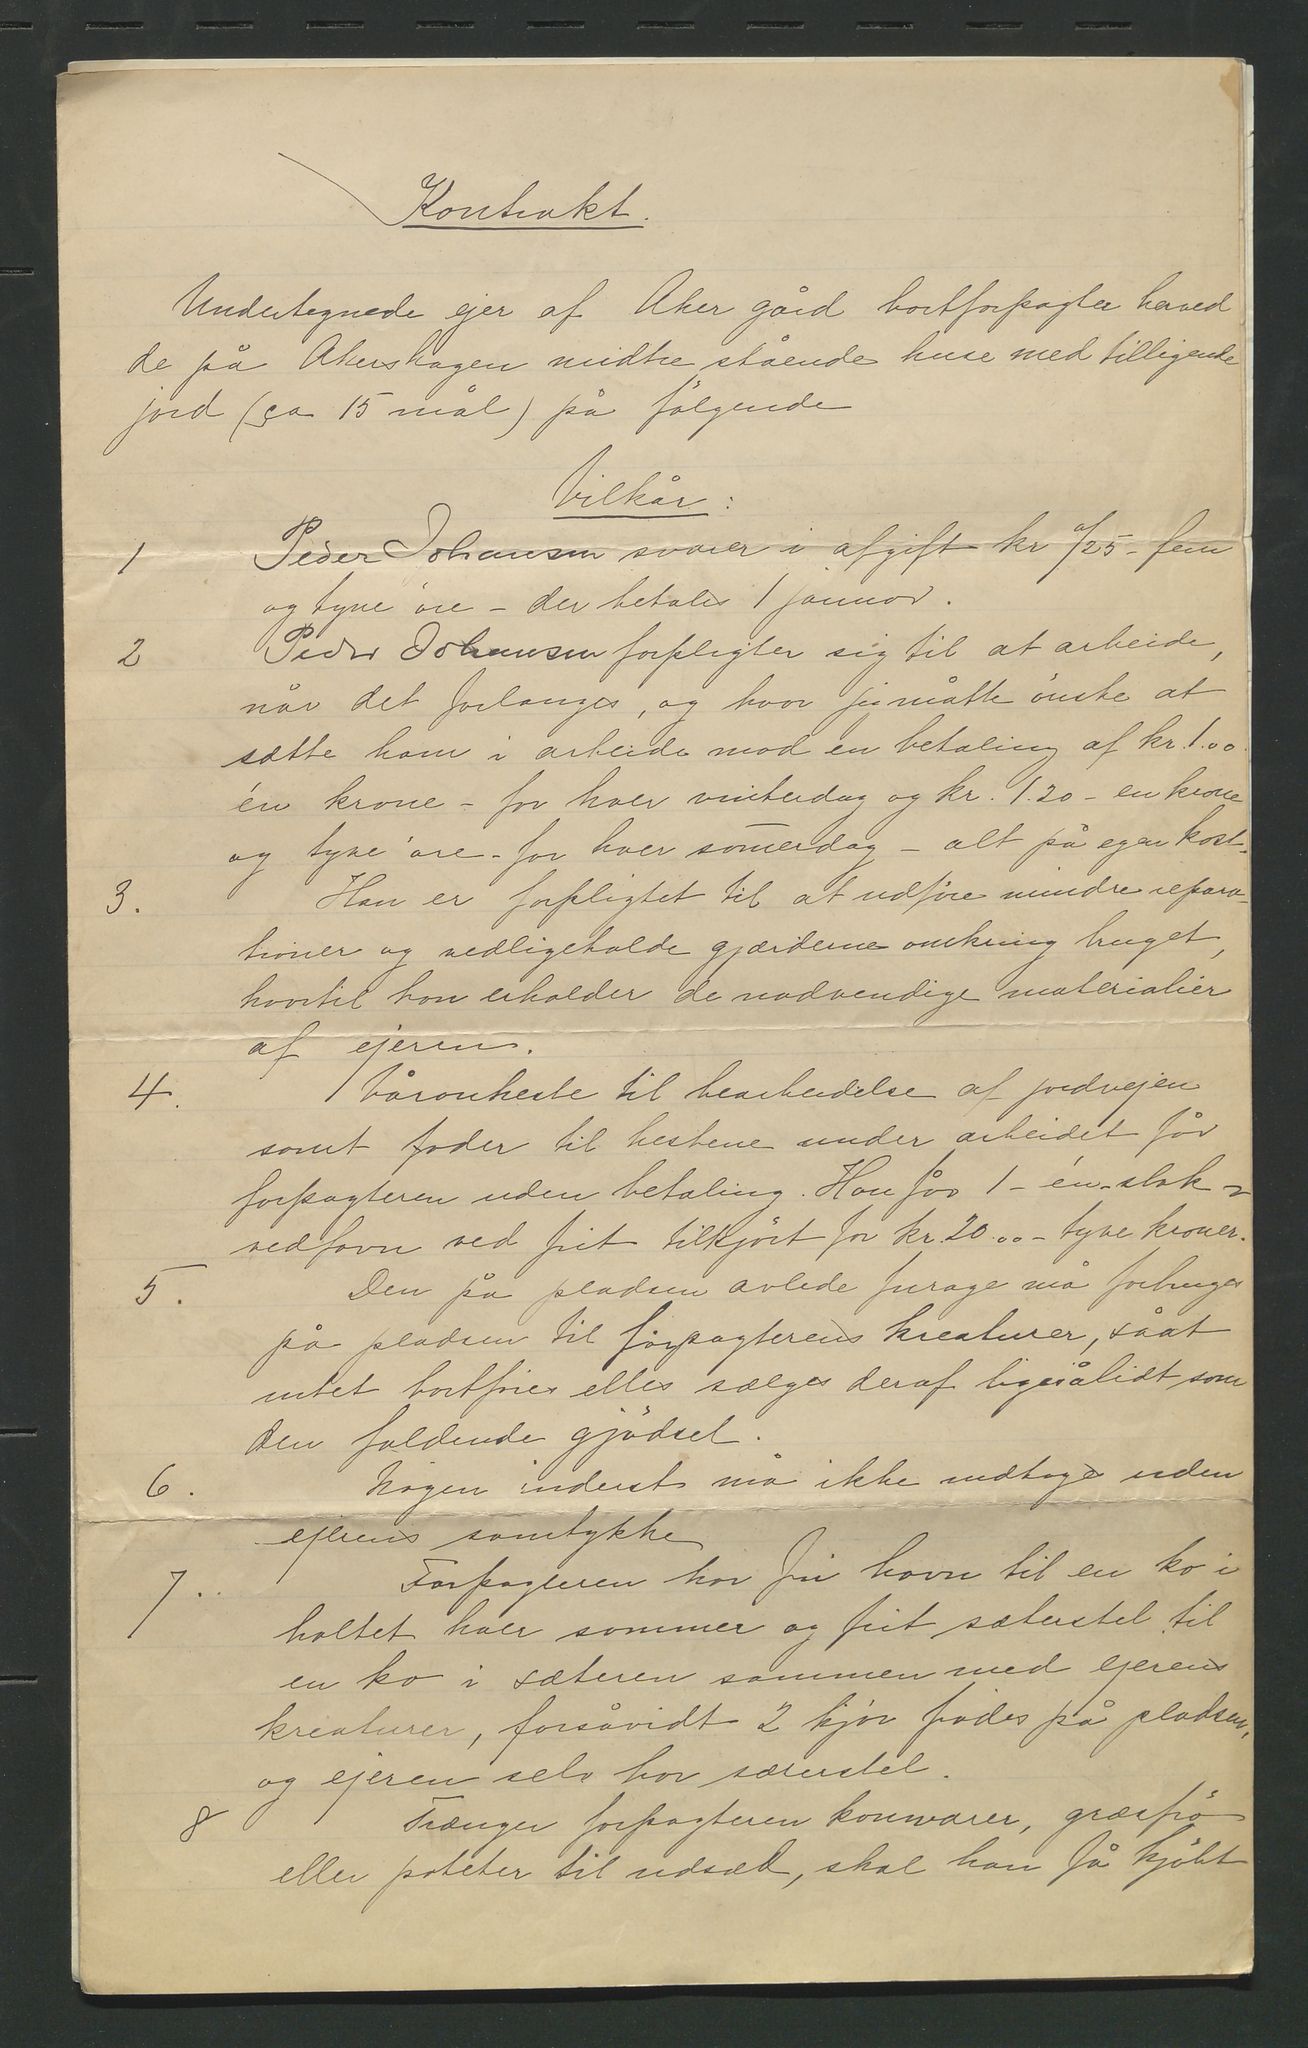 Kontrakt.
Undertegnede ejer af Aker gård bortforpagter herved
de på Akershagen midtre stående huse med tilligende
jord (ca 15 mål) på følgende
Vilkår:
1 Peder Johansen svarer i afgift kr 0/25 - fem
og tyve øre - der betales 1 januar.
2 Peder Johansen forpligter sig til at arbeide,
når det forlanges, og hvor jeg måtte ønske at
sætte ham i arbeide mod en betaling af kr. 1.00
én krone - for hver vinterdag og kr. 1.20 - en krone
og tyve øre - for hver som̅erdag - alt på egen kost.
3. Han er forpligtet til at udføre mindre repara-
tioner og vedligeholde gjærderne omkring bruget,
hvortil han erholder de nødvendige materialier
af ejeren.
4. Våronheste til bearbeidelse af jordvejen
samt foder til hestene under arbeidet får
forpagteren uden betaling. Han får 1 - én - slak
vedfavn ved frit tilkjørt for kr. 20.00 - tyve kroner.
5. Den på pladsen avlede furage må forbruges
på pladsen til forpagterens kreaturer, såat
intet bortføres elles sælges deraf ligesålidt som
den faldende gjødsel.
6. Nogen inderst må ikke indtages uden
ejerens samtykke
7. Forpagteren har fri havn til en ko i
holtet hver sommer og frit sæterstel til
en ko i sæteren sammen med ejerens
kreaturer, forsåvidt 2 kjør fødes på pladsen,
og ejeren selv har sæterstel.
8 Trænger forpagteren kornvarer, græsfrø
eller poteter til udsæd, skal han få kjøbt